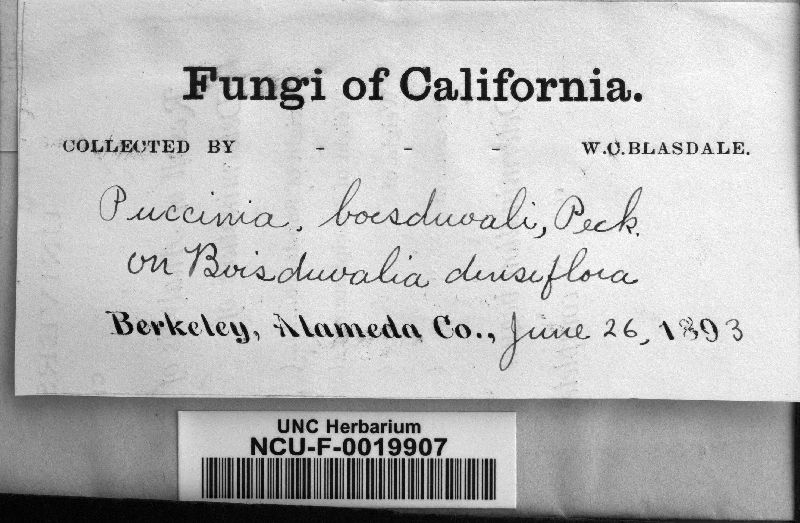 Fungi of California.
COLLECTED BY - - - W.C.BLASDALE.
Puccinia, boisduvali, Peck.
on Boisduvalia densiflora
Berkeley, Alameda Co., June 26, 1893
UNC Herbarium
NCU-F-0019907